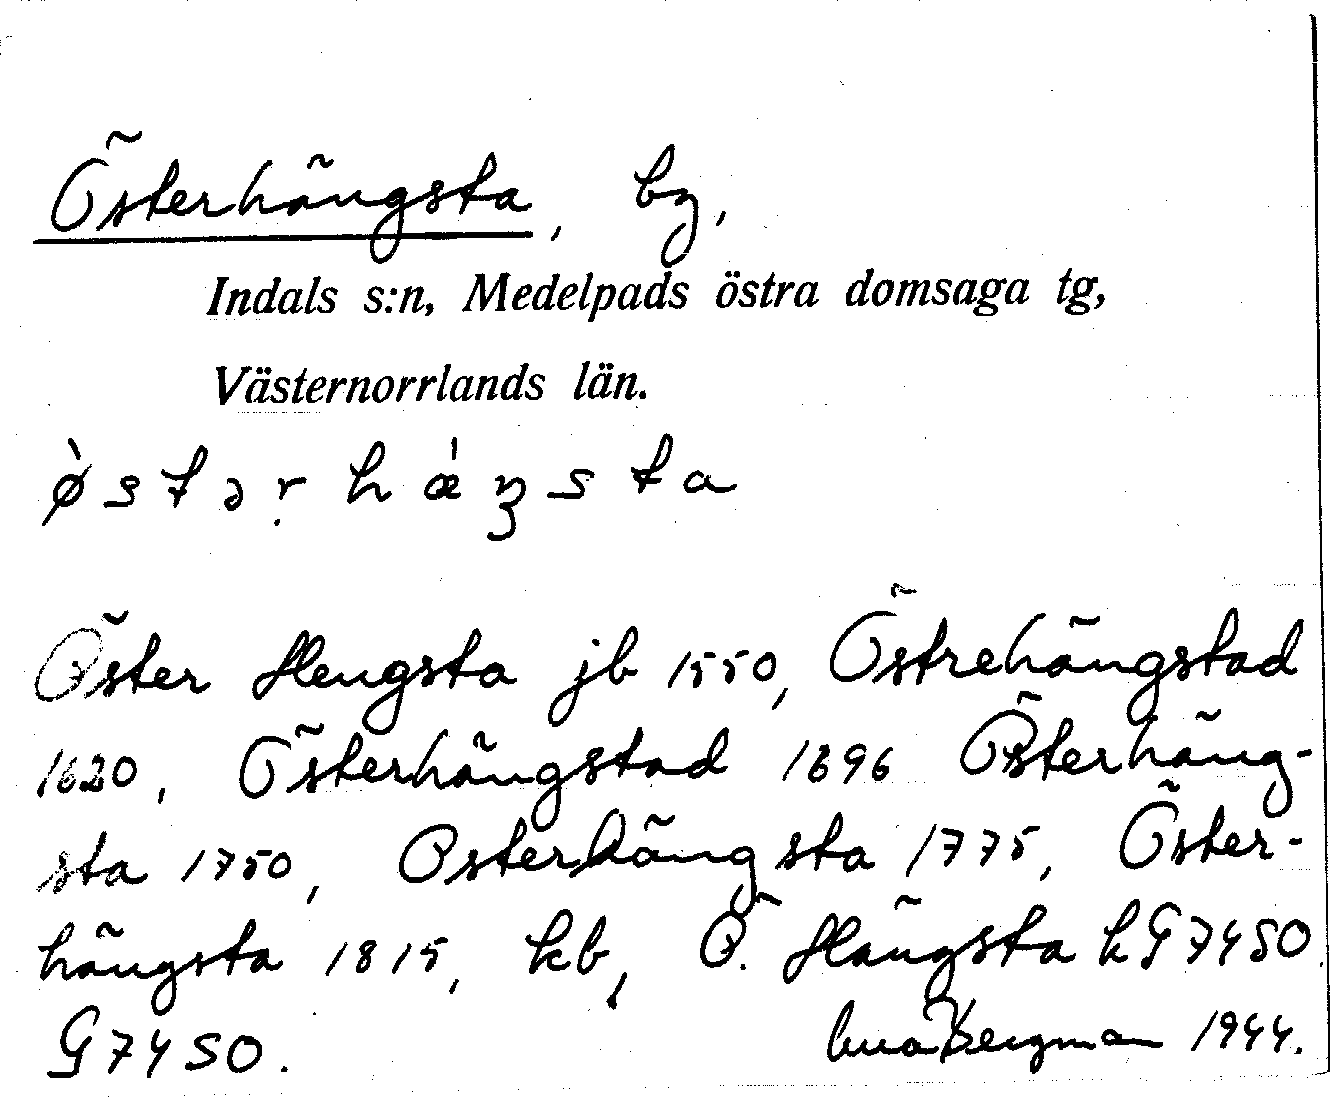 Österhängsta, by,
Indals s:n, Medelpads östra domsaga tg,
Västernorrlands län.
ø̀stərhǽŋsta
Öster Hengsta jb 1550, Östrehängstad
1620, Österhängstad 1696 Österhäng-
sta 1750, Österhängsta 1775, Öster-
hängsta 1815, kb, Ö. Hängsta k G 74 SO.
G 74 SO. Bergman 1944.